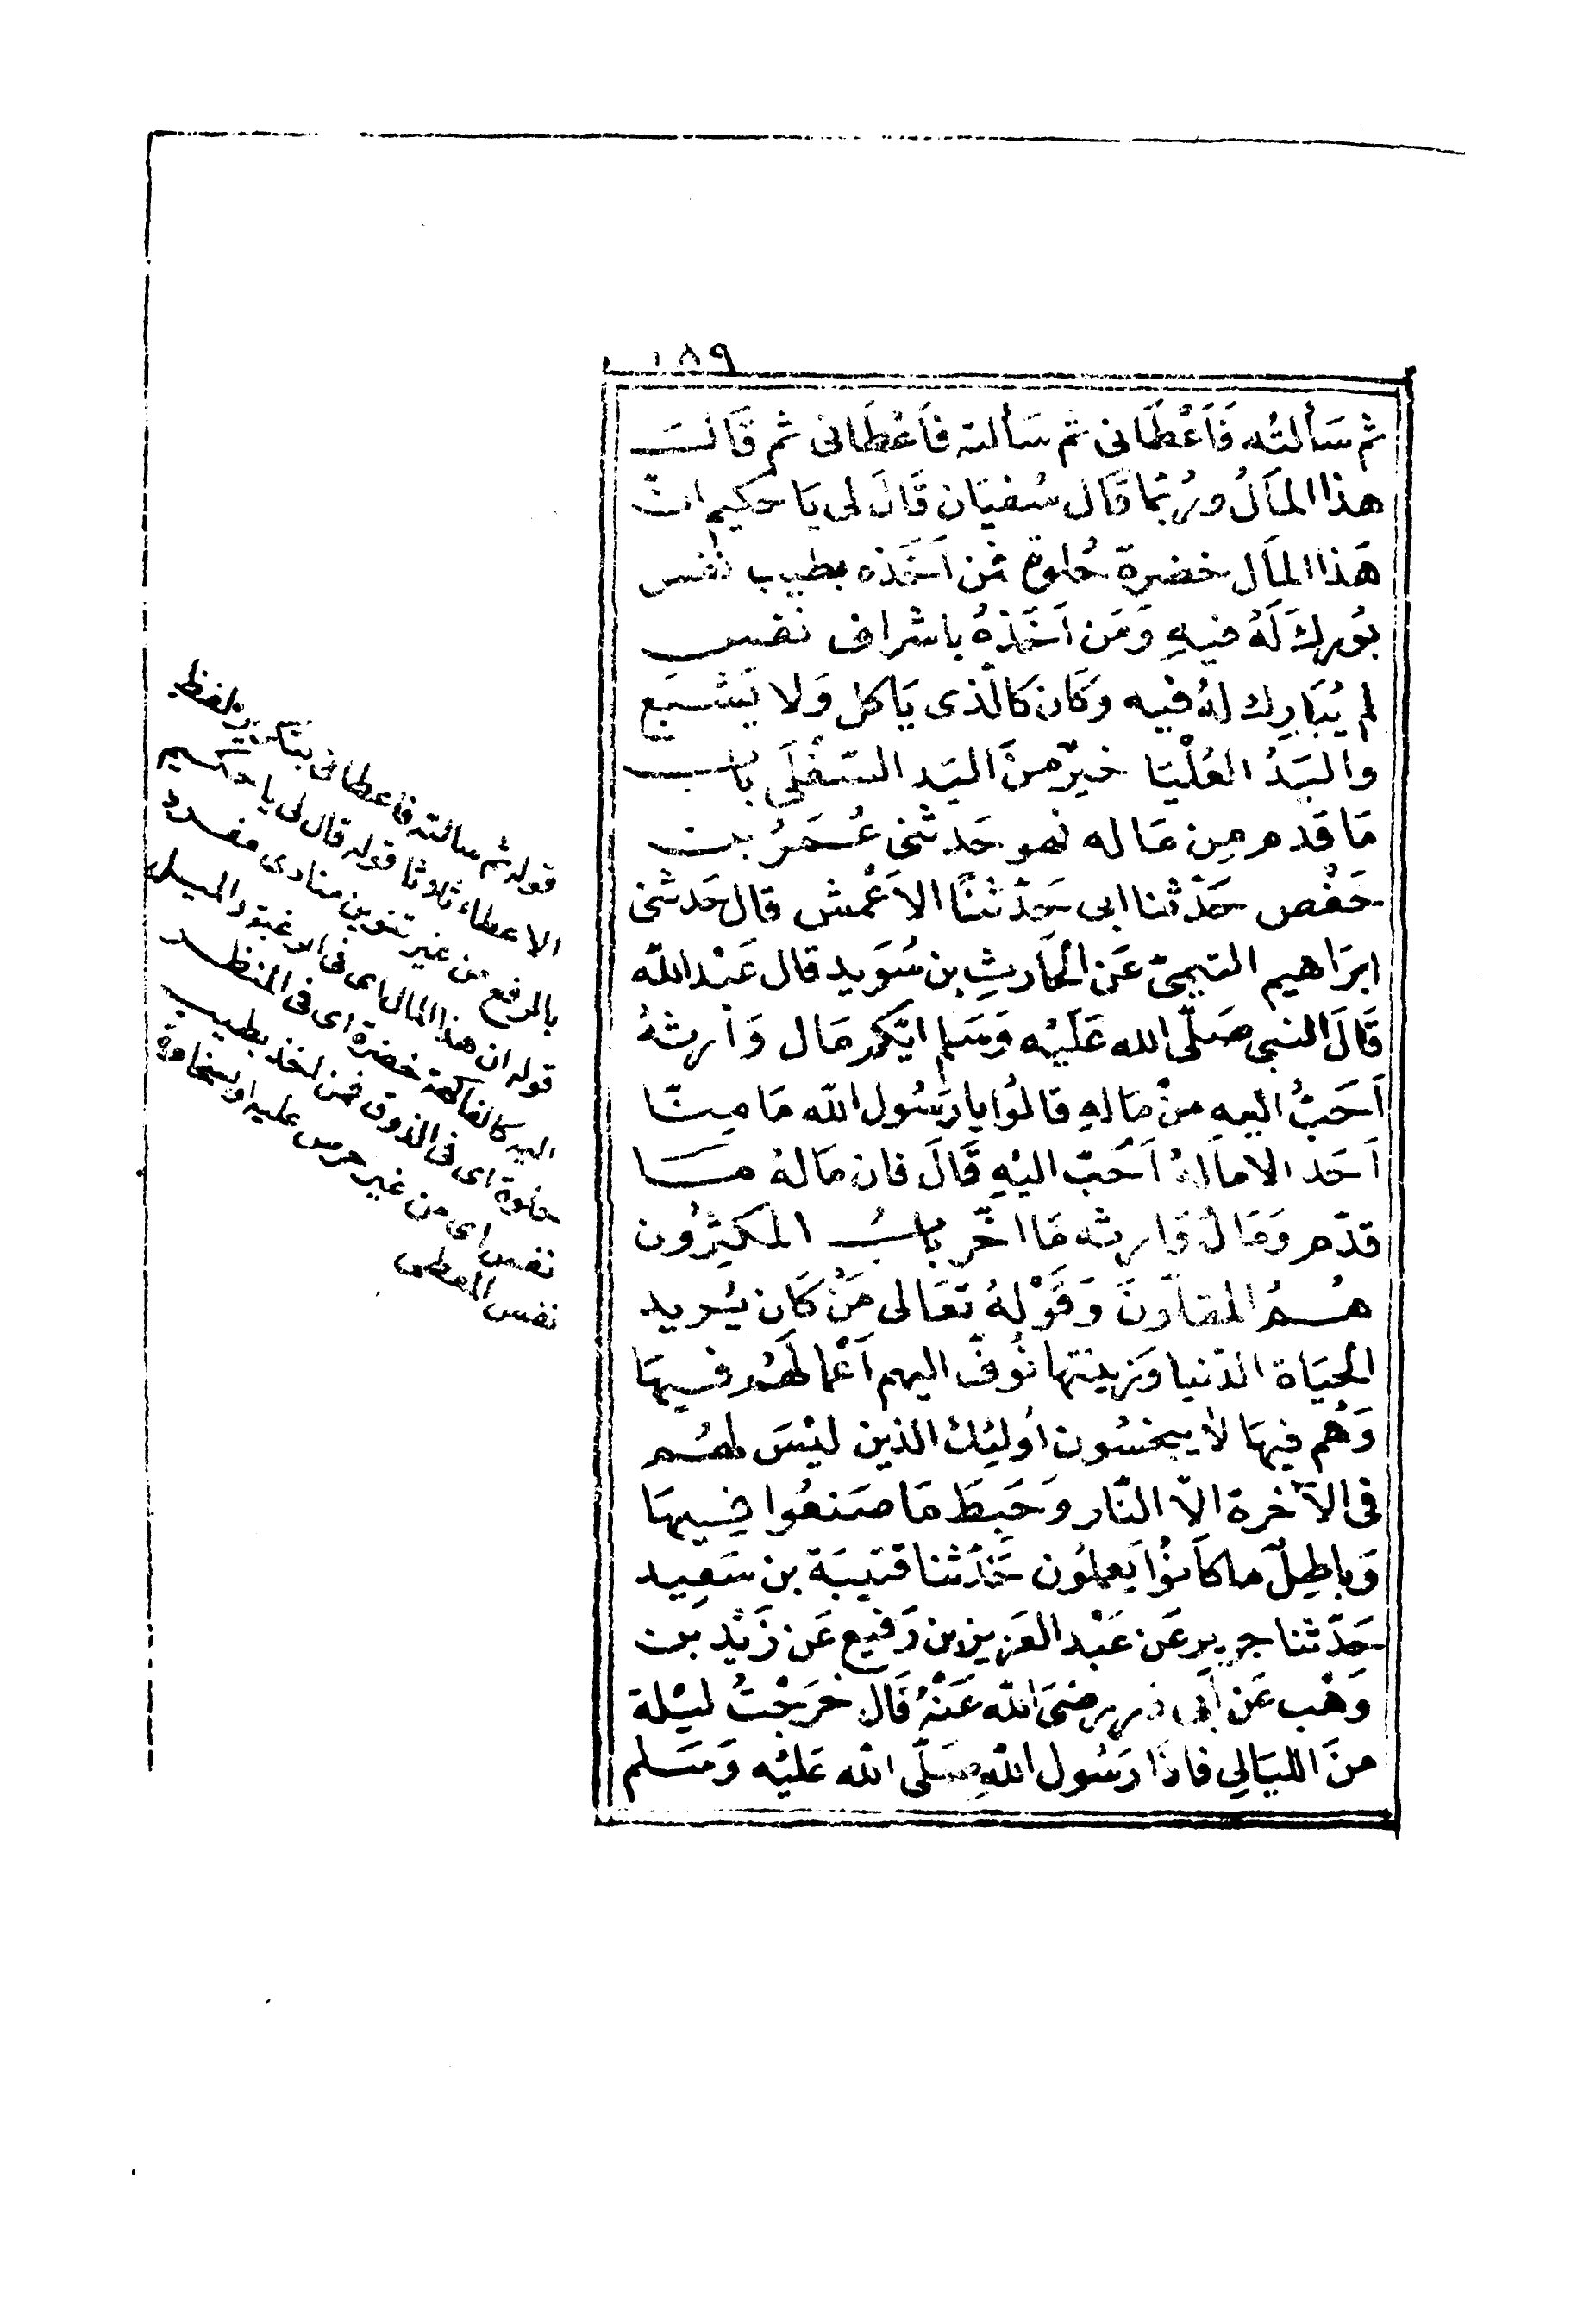 ١٥٩
ثم سَألتُه فَاَعْطَانى ثم سَألته فاَعْطَانى ثم قَالــَـ
هذا المَالُ ورُبّما قَال سُفيَان قَالَ لى يَا حَكيم انّ
هَذا المَال خضرة حُلوة فمن اَخَذه بطيب نفس
بوُرِك لَهُ فيهِ وَمَن اَخَذهُ باشراف نفس
لم يُبَارِك لهُ فيه وَكَان كالّذى يَاكل وَلا يَشبع
واليَدُ العُلْيَا خيرٌ منَ اليَد السّفْلَى بابــ
مَا قدم مِن مَاله فهو حَدثنى عُمَرُ بن
حَفْص حَدّثنا ابى حَدّثنَا الاَعْمش قال حَدثنى
ابرَاهيم التيمىّ عَن الحَارثِ بن سُوَيد قال عَبْد الله
قَالَ النبى صَلّى الله عَلَيْه وَسَلم ايّكم مَال وَارثهُ
اَحَبُّ اليهِ منْ مَالهِ قالوُا يا رَسُول الله مَا مِنّا
اَحَد الا مالهُ اَحَبّ اليْهِ قَالَ فان مَالهُ مَـا
قدّم وَمَالُ وَارثه مَا اخّر بابُ المكثِرُون
هُـمُ المقلّونَ وَقَوْلِهُ تعَالى مَنْ كَان يُريد
الحيَاة الدّنيا وَزينتها نُوفّ اليهم اَعْمالهُم فيهَا
وَهُم فيهَا لا يبخسُون اُولئِك الذين ليْسَ لهُـم
فى الآخرة الاّ النّار وَحَبِطَ مَا صَنعُوا فِيهَا
وَباطِلٌ ما كاَنوُا يَعملوُن حَدّثنا قتيبَة بن سَعِيد
حَدّثنا جرير عَن عَبْد العَزيز بن رَفيع عَن زَيْد بن
وَهْب عَن اَبى ذر رضىَ الله عَنْهُ قَال خرَجْتُ ليْلة
منَ الليَالِى فاذا رَسُول اللهِ صَلّى الله عَليْه وَسَلم
قوله ثم سالته فاعطانى بتكرير لفظ
الاعطاء ثلاثا قوله قال لى يا حكيم
بالرفع من غير تنوين منادى مفرد
قوله ان هذا المال اى فى الرغبة والميل
اليه كالفاكهة خضرة اى فى المنظر
حلوة اى فى الذوق فمن اخذ بطيب
نفس اى من غير حرص عليه او بسخاوة
نفس المعطى